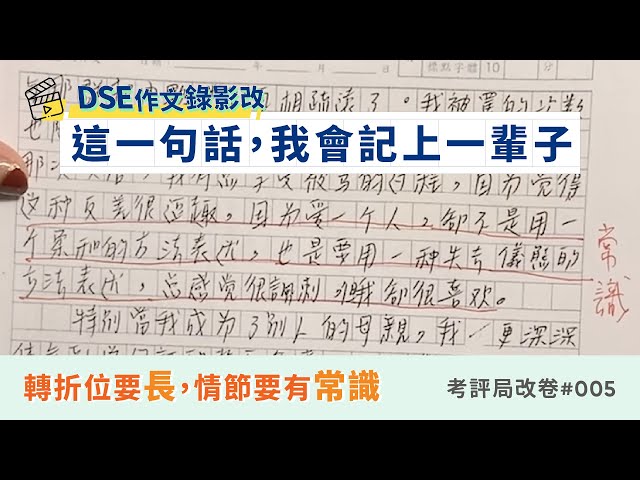 標點字體 10 分
年 月 日
相疏遠了。我被罵的次數
DSE作文錄影改
這一句話,我會記上一輩子
的过程，因为覺得
这种反差很逗趣，因为愛一个人，卻不是用一
个柔和的方法表达，也是要用一种失去儀態的
方法表达，总感觉很諷刺，我卻很喜欢。
常識
特別當我成为了別人的母親，我一更深深
轉折位要長,情節要有常識
考評局改卷#005